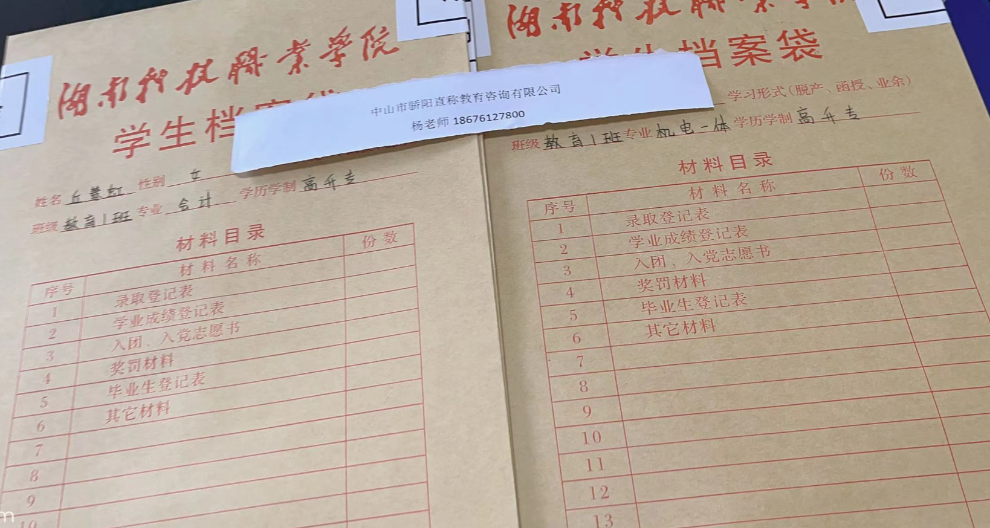 湖南科技職業学院
学生档案袋
姓名 丘慧虹 性别 女
班级 教育1班 专业 会计 学历学制 高升专
材料目录
序号 材料名称 份数
1 录取登记表
2 学业成绩登记表
3 入团、入党志愿书
4 奖罚材料
5 毕业生登记表
6 其它材料
7
8
9
10
中山市骄阳直称教育咨询有限公司
杨老师 18676127800
湖南科技職業学院
学生档案袋
学习形式(脱产、函授、业余)
班级 教育1班 专业 机电一体 学历学制 高升专
材料目录
序号 材料名称 份数
1 录取登记表
2 学业成绩登记表
3 入团、入党志愿书
4 奖罚材料
5 毕业生登记表
6 其它材料
7
8
9
10
11
12
13